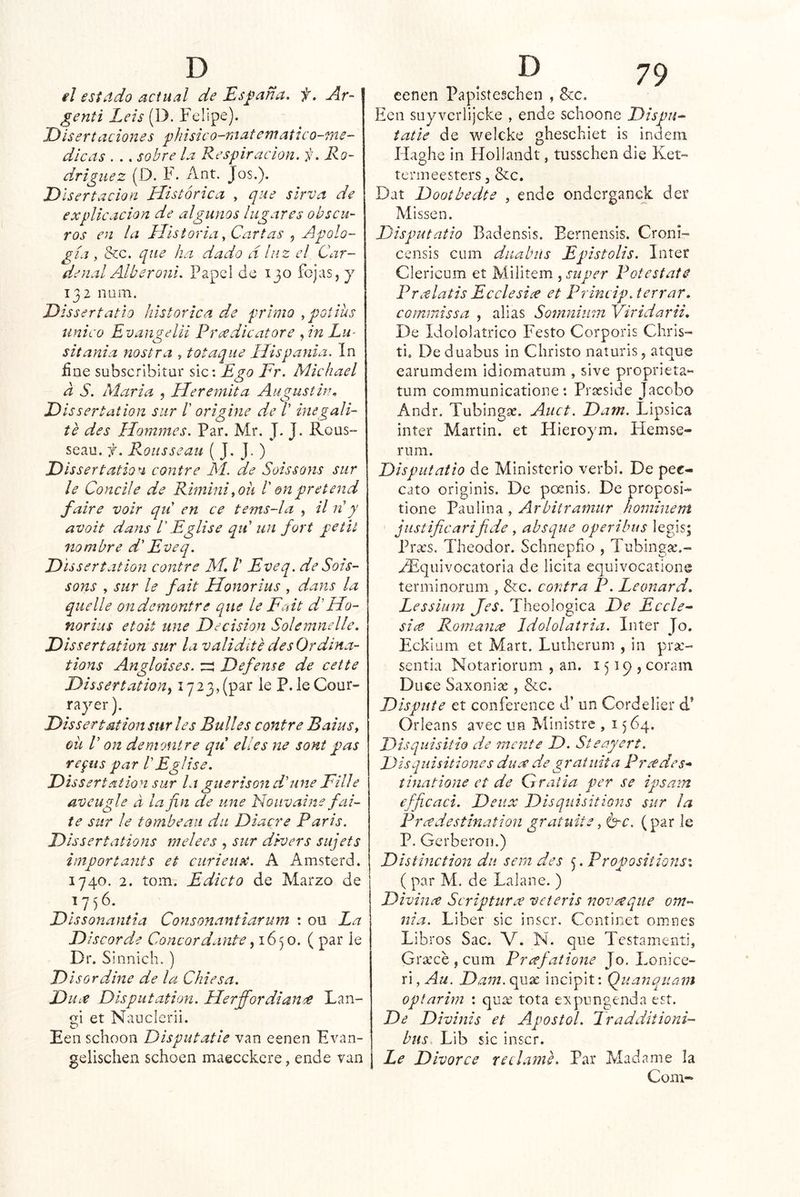 D
el estado actual de España. ℣. Ar-
genti Leis (D. Felipe).
Disertaciones phisico-matematico-me-
dicas ... sobre la Respiracion. ℣. Ro-
driguez (D. F. Ant. Jos.).
Disertacion Histórica , que sirva de
explicacion de algunos lugares obscu-
ros en la Historia, Cartas , Apolo-
gía , &c. que ha dado á luz el Car-
denal Alberoni. Papel de 130 fojas, y
132 num.
Dissertatio historica de primo , potiùs
unico Evangelii Prædicatore , in Lu-
sitania nostra , totaque Hispania. In
fine subscribitur sic: Ego Fr. Michael
à S. Maria , Heremita Augustin.
Dissertation sur l' origine de l' inegali-
tè des Hommes. Par. Mr. J. J. Rous-
seau. ℣. Rousseau ( J. J. )
Dissertation contre M. de Soissons sur
le Concile de Rimini, où l' on pretend
faire voir qu' en ce tems-la , il n' y
avoit dans l' Eglise qu' un fort petit
nombre d' Eveq.
Dissertation contre M. l' Eveq. de Sois-
sons , sur le fait Honorius , dans la
quelle on demontre que le Fait d' Ho-
norius etoit une Decision Solemnelle.
Dissertation sur la validitè des Ordina-
tions Angloises. = Defense de cette
Dissertation, 1723, (par le P. le Cour-
rayer ).
Dissertation sur les Bulles contre Baius,
où l' on demontre qu' elles ne sont pas
reçus par l' Eglise.
Dissertation sur la guerison d' une Fille
aveugle à la fin de une Nouvaine fai-
te sur le tombeau du Diacre Paris.
Dissertations melees , sur divers sujets
importants et curieux. A Amsterd.
1740. 2. tom. Edicto de Marzo de
1756.
Dissonantia Consonantiarum : ou La
Discorde Concordante, 1650. ( par le
Dr. Sinnich. )
Disordine de la Chiesa.
Duæ Disputation. Herffordianæ Lan-
gi et Nauclerii.
Een schoon Disputatie van eenen Evan-
gelischen schoen maecckere, ende van
D 79
eenen Papisteschen , &c.
Een suyverlijcke , ende schoone Dispu-
tatie de welcke gheschiet is indem
Haghe in Hollandt, tusschen die Ket-
termeesters, &c.
Dat Dootbedte , ende onderganck der
Missen.
Disputatio Badensis. Bernensis. Croni-
censis cum duabus Epistolis. Inter
Clericum et Militem , super Potestate
Prælatis Ecclesiæ et Princip. terrar.
commissa , alias Somnium Viridarii.
De Idololatrico Festo Corporis Chris-
ti. De duabus in Christo naturis, atque
earumdem idiomatum , sive proprieta-
tum communicatione: Præside Jacobo
Andr. Tubingæ. Auct. Dam. Lipsica
inter Martin. et Hieroym. Hemse-
rum.
Disputatio de Ministerio verbi. De pec-
cato originis. De pœnis. De proposi-
tione Paulina , Arbitramur hominem
justificari fide , absque operibus legis;
Præs. Theodor. Schnepfio , Tubingæ.-
Æquivocatoria de licita equivocatione
terminorum , &c. contra P. Leonard.
Lessium Jes. Theologica De Eccle-
siæ Romanæ Idololatria. Inter Jo.
Eckium et Mart. Lutherum , in præ-
sentia Notariorum , an. 1519, coram
Duce Saxoniæ , &c.
Dispute et conference d' un Cordelier d'
Orleans avec un Ministre , 1564.
Disquisitio de mente D. Steayert.
Disquisitiones duæ de gratuita Prædes-
tinatione et de Gratia per se ipsam
efficaci. Deux Disquisitions sur la
Prædestination gratuite, &c. (par le
P. Gerberon.)
Distinction du sem des 5. Propositions:
( par M. de Lalane. )
Divinæ Scripturæ veteris novæque om-
nia. Liber sic inscr. Continet omnes
Libros Sac. V. N. que Testamenti,
Græcè , cum Præfatione Jo. Lonice-
ri, Au. Dam. quæ incipit: Quanquam
optarim : quæ tota expungenda est.
De Divinis et Apostol. Tradditioni-
bus. Lib sic inscr.
Le Divorce reclamè. Par Madame la
Com-